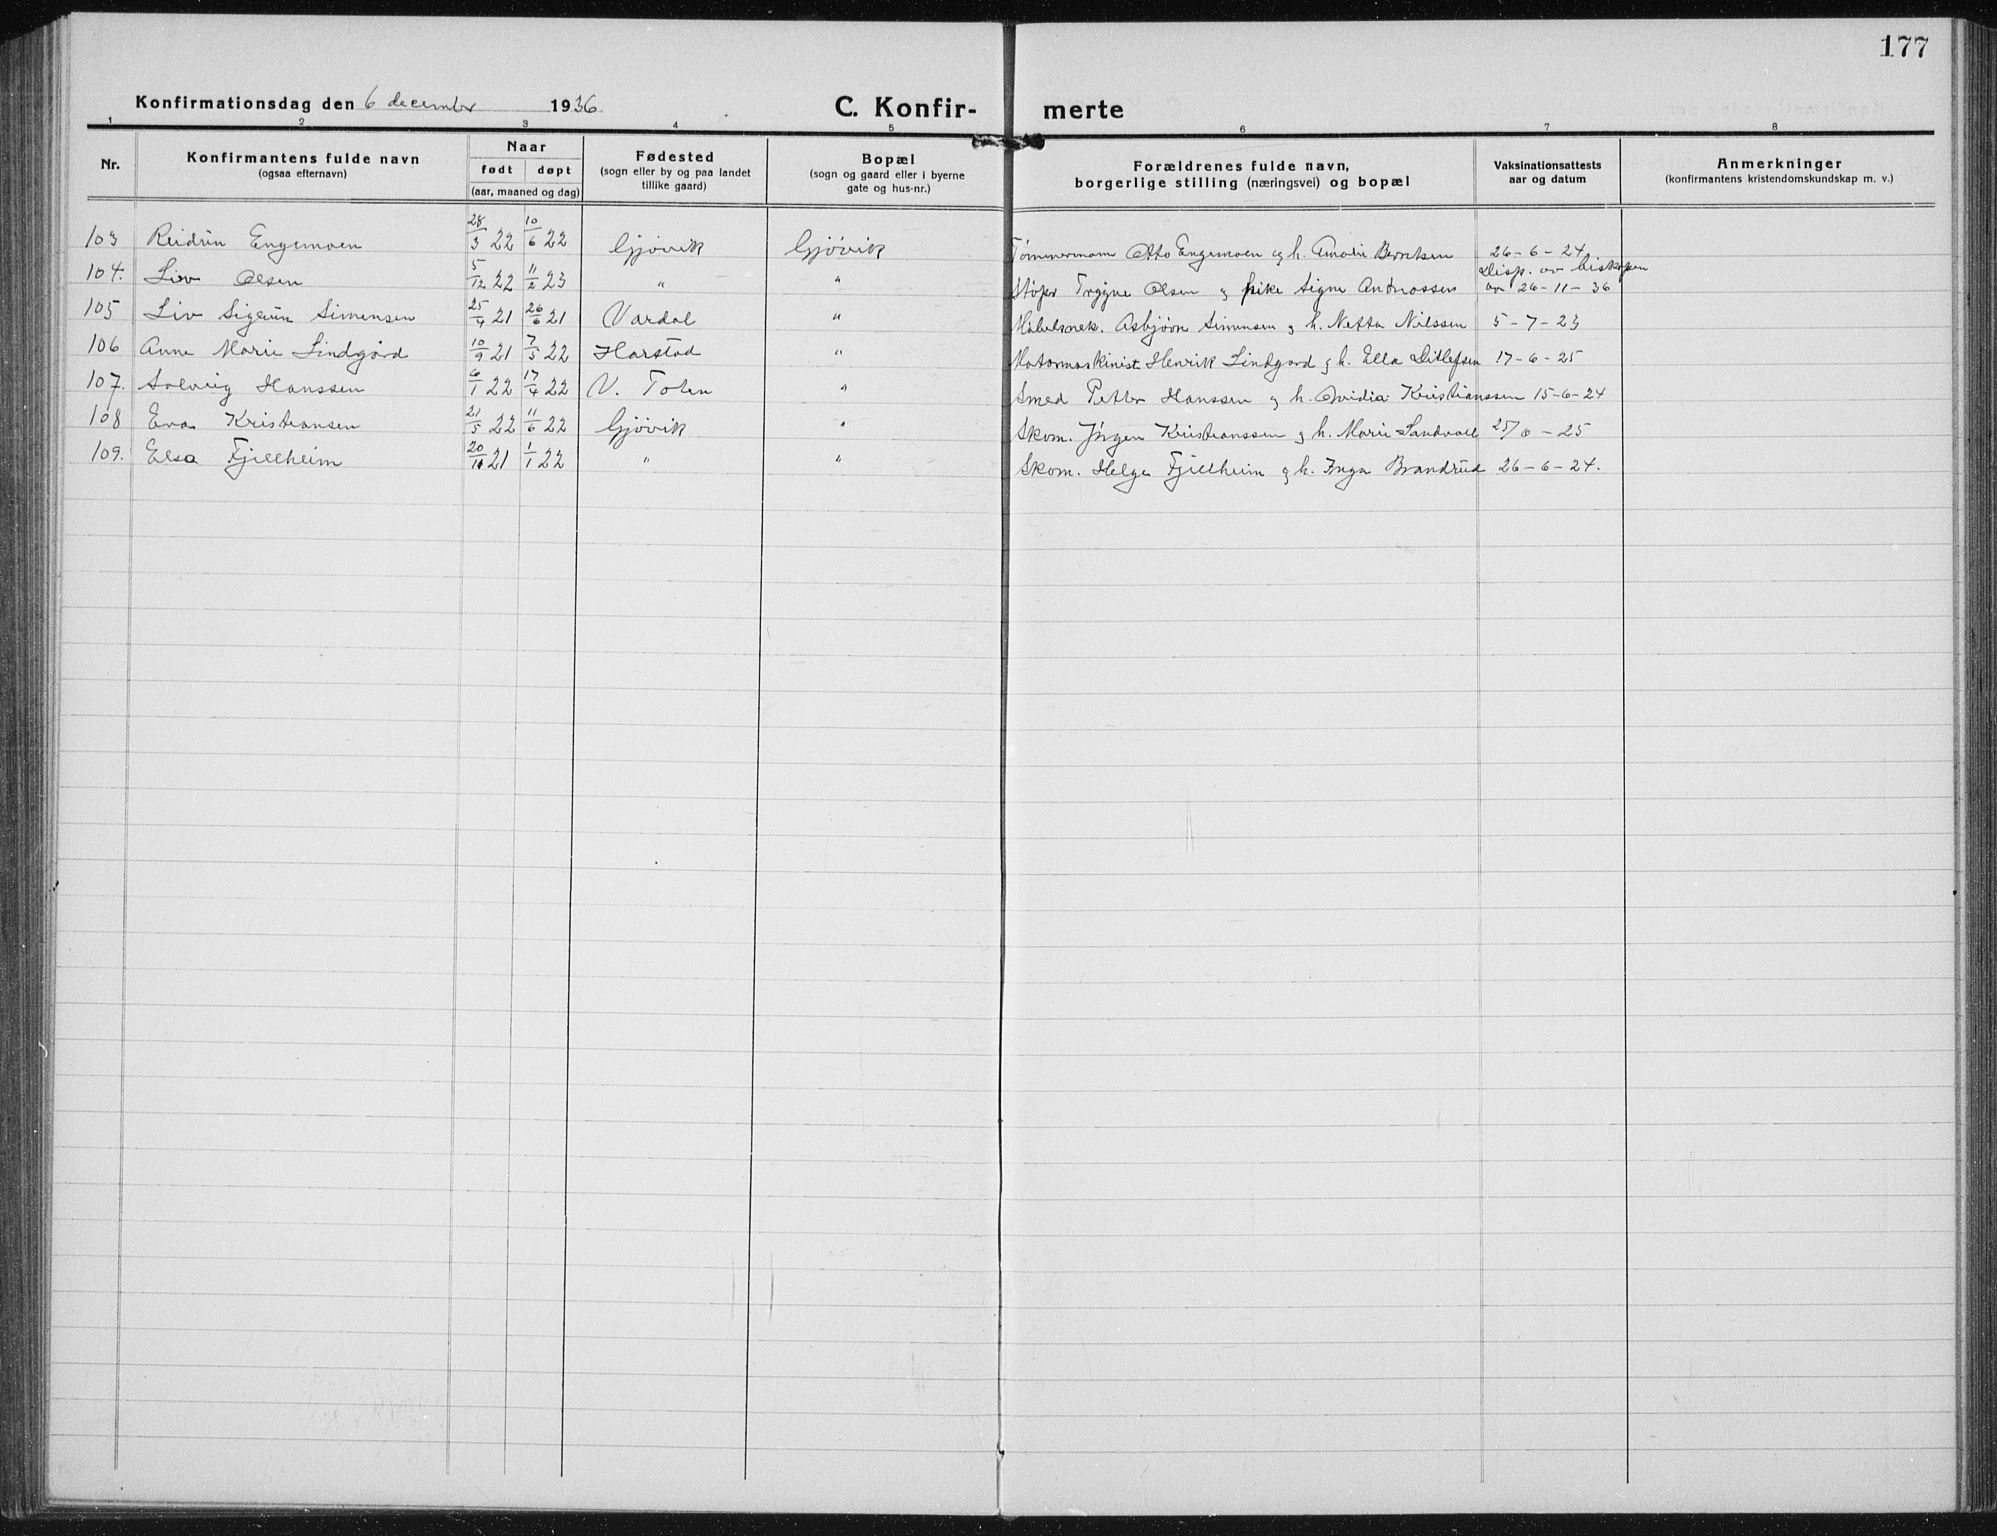 177
Konfirmationsdag den 6 december 1936 C. Konfir- merte
1 2 3 4 5 6 7 8
Nr. Konfirmantens fulde navn (ogsaa efternavn) Naar født døpt (aar, maaned og dag) Fødested (sogn eller by og paa landet tillike gaard) Bopæl (sogn og gaard eller i byerne gate og hus-nr.) Forældrenes fulde navn, borgerlige stilling (næringsvei) og bopæl Vaksinationsattests aar og datum Anmerkninger (konfirmantens kristendomskundskap m. v.)
103 Reidrun Engemoen 28/3 22 10/6 22 Gjøvik Gjøvik Tømmermann Otto Engemoen og h. Berntsen 26-6-24
104. Liv Olsen 5/12 22 11/2 23 " " Støper Trygve Olsen og pike Signe Andreassen Disp. av biskopen av 26-11-36
105 Liv Sigrun Simensen 25/4 21 26/6 21 Vardal " Møbelsnek. Asbjørn Simensen og h. Netta Nilssen 5-7-23
106 Anne Marie Lindgård 10/9 21 7/5 22 Harstad " Motormaskinist Henrik Lindgard og h. Ella Ditlefsen 17-6-25
107. Solveig Hanssen 6/1 22 17/4 22 V. Toten " Smed Petter Hanssen og h. Kristianssen 15-6-24
108 Eva Kristiansen 21/5 22 11/6 22 Gjøvik " Skom. Jørgen Kristianssen og h. Marie Sandvoll 25/6-25
109. Elsa Fjellheim 20/10 21 1/1 22 " " Skom. Helge Fjellheim og h. Inga Brandrud 26-6-24.